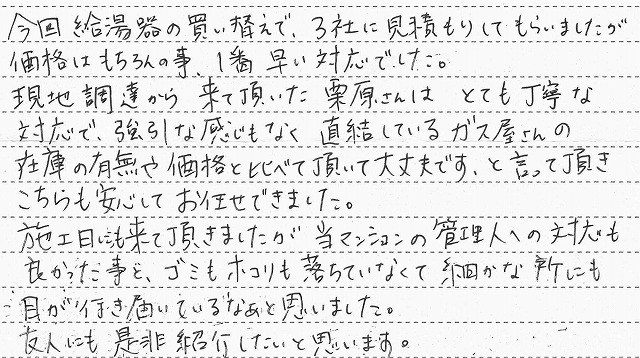 今回 給湯器の買い替えで、3社に見積もりしてもらいましたが
価格はもちろんの事、1番 早い対応でした。
現地調達から 来て頂いた 栗原さんは とても丁寧な
対応で、強引な感じもなく 直結している ガス屋さんの
在庫の有無や価格と比べて頂いて大丈夫です、と言って頂き
こちらも安心して お任せできました。
施工日にも来て頂きましたが 当マンションの管理人への対応も
良かった事と、ゴミもホコリも落ちていなくて 細かな所にも
目が行き届いているなぁと思いました。
友人にも 是非紹介したいと思います。